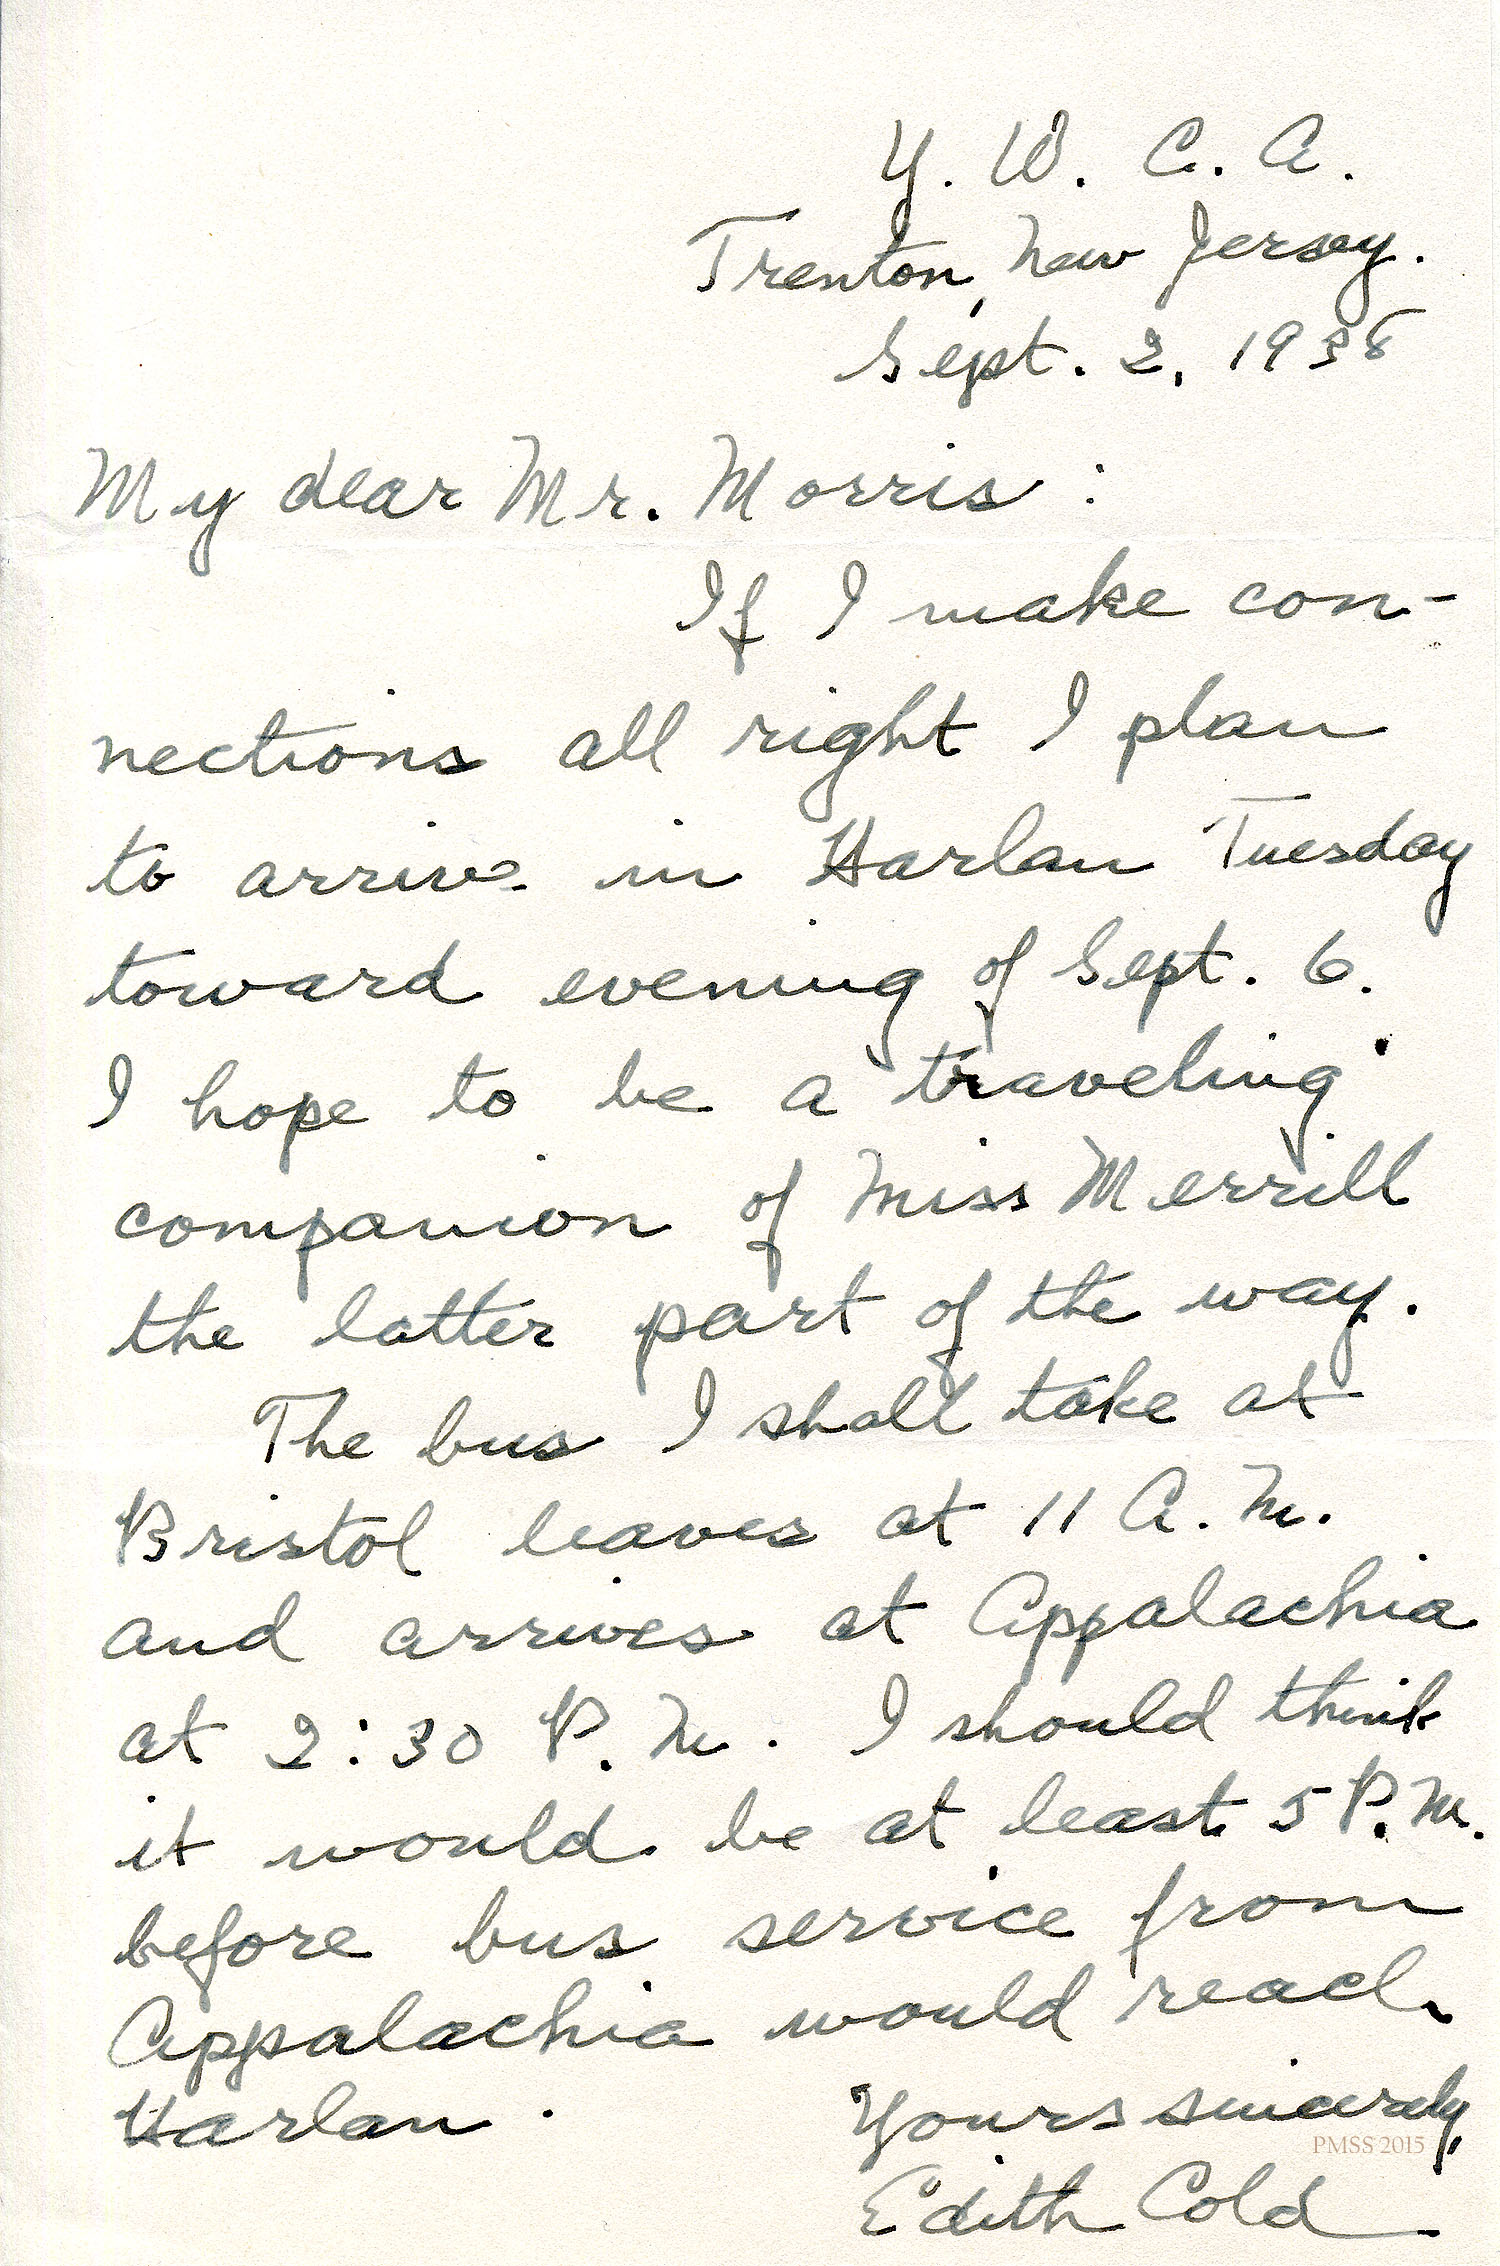 Y. W. C. A.
Trenton, New Jersey.
Sept. 2, 1938
My dear Mr. Morris :
If I make con-
nections all right I plan
to arrive in Harlan Tuesday
toward evening of Sept. 6.
I hope to be a traveling
companion of Miss Merrill
the latter part of the way.
The bus I shall take at
Bristol leaves at 11 A.M.
and arrives at Appalachia
at 2:30 P.M. I should think
it would be at least 5 P.M.
before bus service from
Appalachia would reach
Harlan.
Yours sincerely,
PMSS 2015
Edith Cold